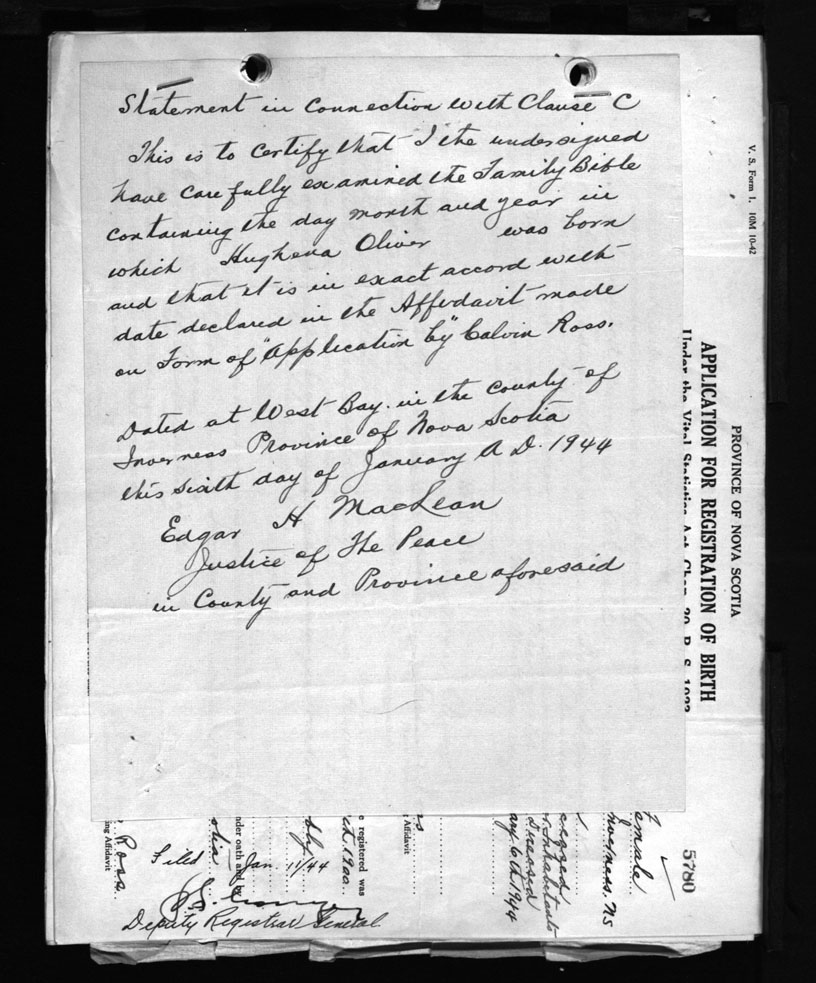 Statement in connection with Clause C
This is to certify that I the undersigned
have carefully examined the Family Bible
containing the day month and year in
which Hughena Oliver was born
and that it is in exact accord with
date declared in the Affidavit made
on Form of "Application by" Calvin Ross.
Dated at West Bay. in the County of
Inverness Province of Nova Scotia
this sixth day of January A.D. 1944
Edgar H MacLean
Justice of The Peace
in County and Province aforesaid
Filed Jan 11/44
Deputy Registrar General
V. S. Form 1. 10M 10-42
PROVINCE OF NOVA SCOTIA
APPLICATION FOR REGISTRATION OF BIRTH
Under the Vital Statistics Act, Chap. 20 R. S. 1923
5780
Female
Inverness. NS
Deceased
any 6th 1944
Affidavit
e registered was
1900
nder oath and by
Ross
ing Affidavit